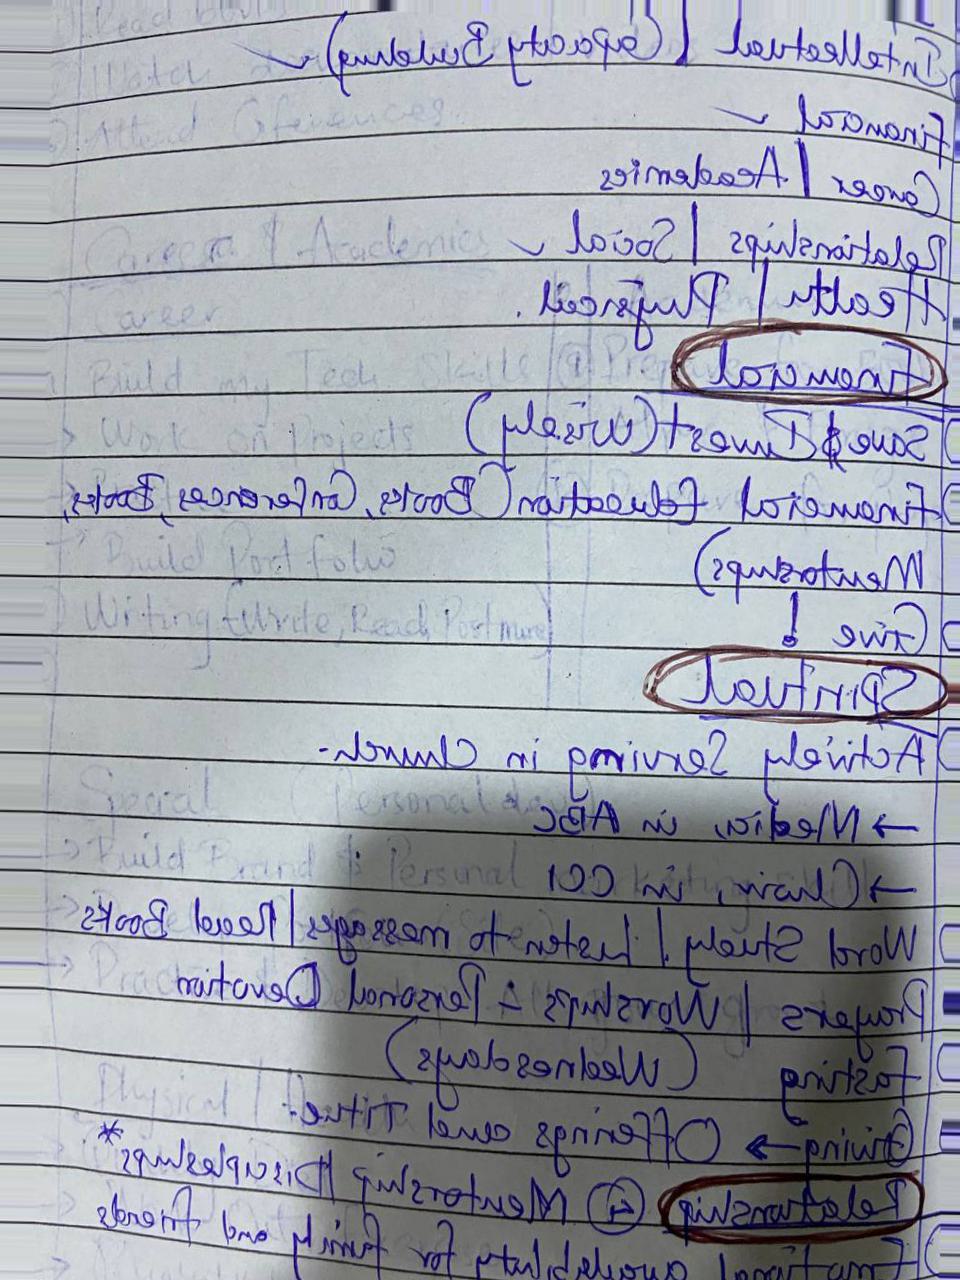 Intellectual | (Capacity Building)
Financial
Career | Academics
Relationships | Social
Health | Physical.
Financial
Save $ Invest (Wisely)
Financial Education (Books, Conferences, Books,
Mentorships)
Give !
Spiritual
Actively Serving in Church-
→ Media, in ABC
→ Choir, in CCI
Word Study | Listen to messages | Read Books
Prayers | Worships Personal Devotion
Fasting (Wednesdays)
Giving → Offerings and Tithe.
Relationship Mentorship | Discipleships*
Emotional availability for family and friends
Read books
Watch
Attend Conferences
Career & Academics
Career
Build my Tech Skills
→ Work on Projects
Build Portfolio
Writing (Write, Read, Post more)
Special (Personal
→ Build Brand & Personal
Physical |